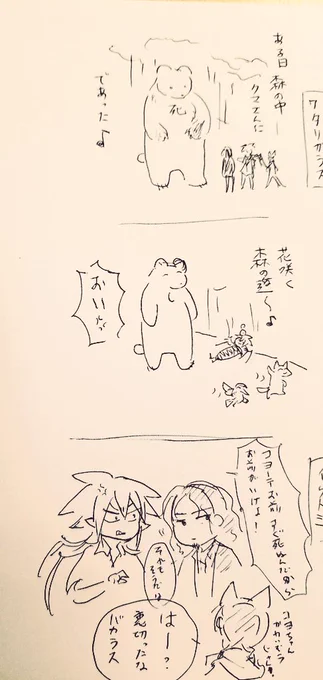 ワタリガラス
ある日
森の中ー
クマさんに
死
であった♪
花咲く
森の道〜♪
おいッッ
コヨーテお前
すぐ死ぬんだから
お前がいけよ!
それもそうだな
はー?
裏切ったな
バカラス
コヨちゃん
かわいそう
じゃん